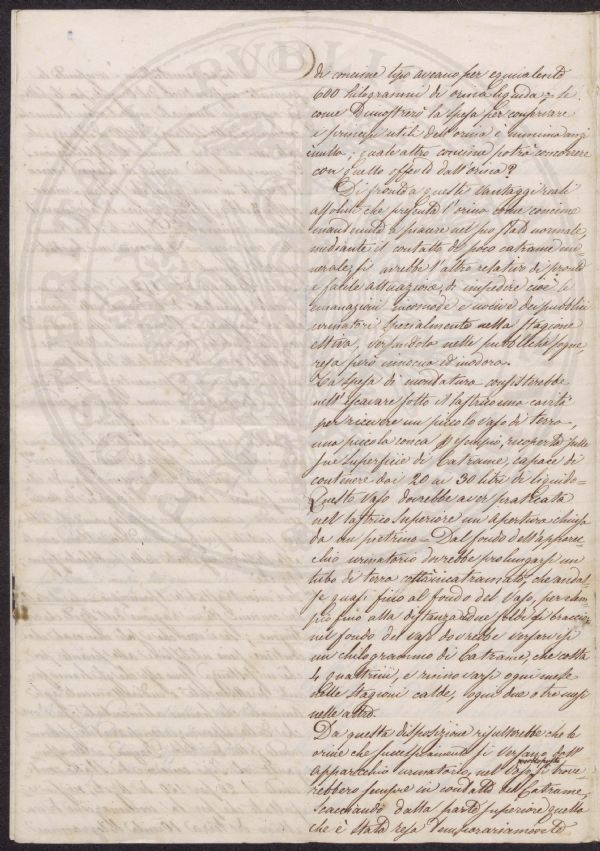 di comune tipo aveano per equivalente
600 kilogrammi di orina liquida; se
come Dimostrerò la spesa per conservare
i principi utili dell'orina è minima anzi
nulla; quale altro concime potrà concorrere
con quello offerto dall'orina?
Di fronte a questi vantaggi reali
assoluti che presenta l'orina come concime
mediante il contatto di poco catrame mi-
nerale, si avrebbe l'altro relativo di pronta
e facile attuazione, di impedire cioè le
emanazioni incomode e nocive dei pubblici
urinatori specialmente nella stagione
estiva, versandola nelle pubbliche fogne,
resa però innocua ed inodora.
La spesa di montatura consisterebbe
nell'escavare sotto il lastrico una cavità
per ricevere un piccolo vaso di terra,
una piccola conca p. esempio, ricoperta sulle
sue superficie di Catrame, capace di
contenere dai 20 ai 30 litri di liquido-
Questo vaso dovrebbe aver praticata
nel lastrico superiore un'apertura chiusa
da un pietrino - Dal fondo dell'apparec-
chio urinatorio dovrebbe prolungarsi un
tubo di terra cotta incatramato, che andas-
se quasi fino al fondo del vaso, per esem-
pio fino alla distanza di due soldi di braccio;
nel fondo del vaso dovrebbe versarvisi
un chilogrammo di Catrame, che costa
4 quattrini, e rinnovarsi ogni mese
nelle stagioni calde, ogni due o tre mesi
nelle altre.
Da questa disposizione risulterebbe che le
orine che successivamente si versano dall'
apparecchio urinatorio, nel vaso si trove-
rebbero sempre in contatto del Catrame,
scacciando dalla parte superiore quella
che è stata resa temporariamente